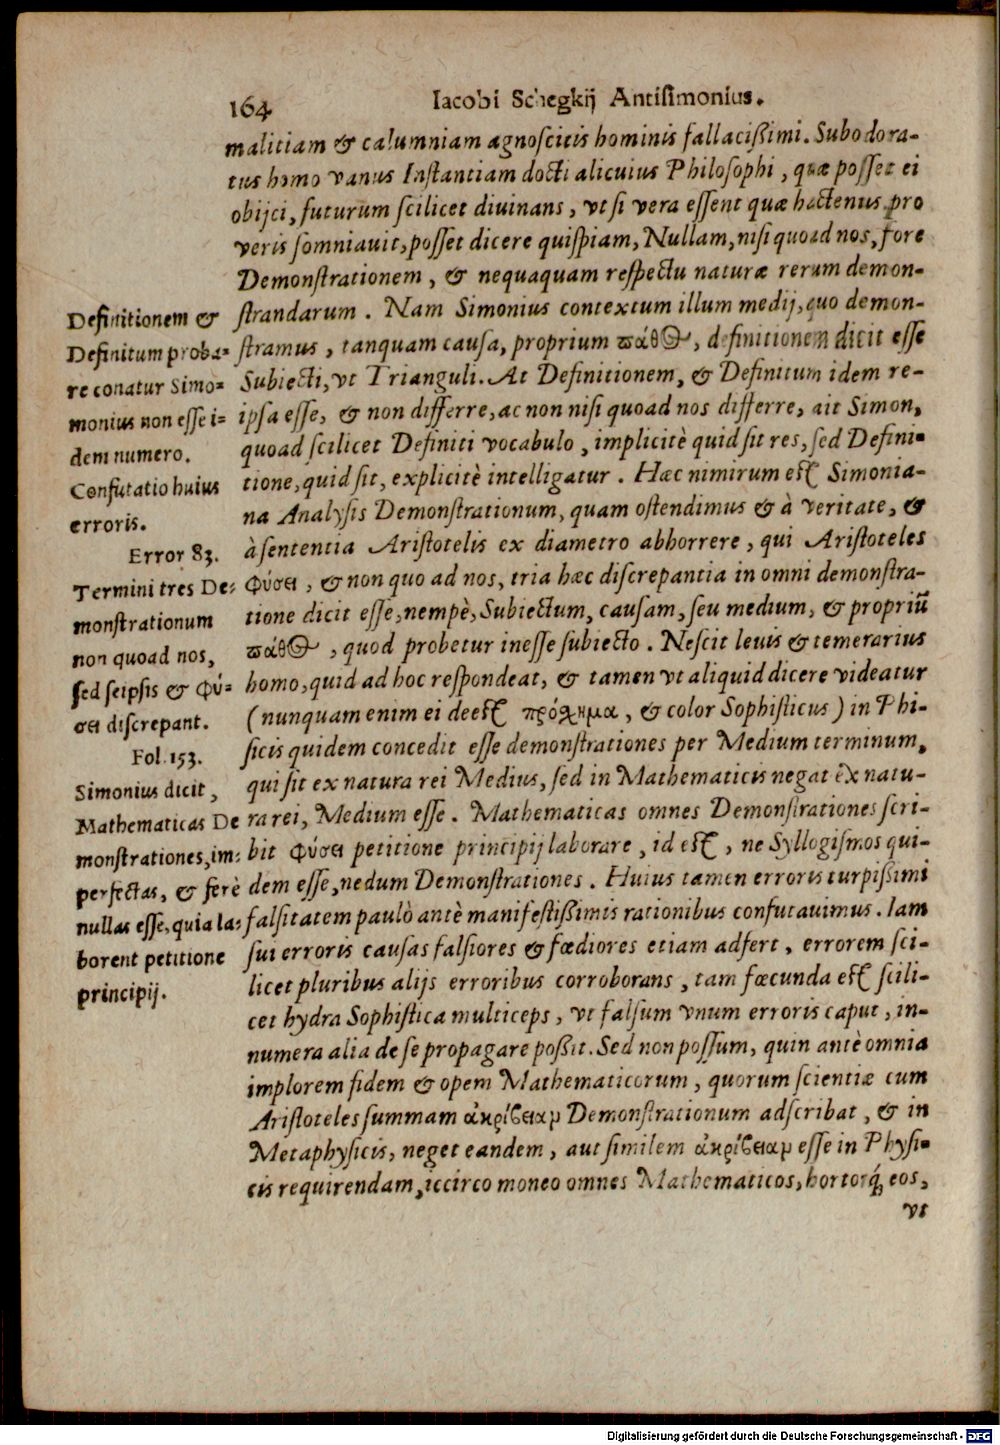 164 Iacobi Schegkij Antisimonius.
malitiam & calumniam agnoscitis hominis fallacißimi. Subodora-
tus homo vanus Instantiam docti alicuius Philosophi, quæ posset ei
obijci, futurum scilicet diuinans, vt si vera essent quæ hactenus pro
veris somniauit, posset dicere quispiam, Nullam, nisi quoad nos, fore
Demonstrationem, & nequaquam respectu naturæ rerum demon-
strandarum. Nam Simonius contextum illum medij, quo demon-
stramus, tanquam causa, proprium πάθος, definitionem dicit esse
Subiecti, vt Trianguli. At Definitionem, & Definitum idem re-
ipsa esse, & non differre, ac non nisi quoad nos differre, ait Simon,
quoad scilicet Definiti vocabulo, implicitè quid sit res, sed Defini-
tione, quid sit, explicitè intelligatur. Hæc nimirum est Simonia-
na Analysis Demonstrationum, quam ostendimus & à veritate, &
à sententia Aristotelis ex diametro abhorrere, qui Aristoteles
φύσει, & non quo ad nos, tria hæc discrepantia in omni demonstra-
tione dicit esse, nempè, Subiectum, causam, seu medium, & propriũ
πάθος, quod probetur inesse subiecto. Nescit leuis & temerarius
homo, quid ad hoc respondeat, & tamen vt aliquid dicere videatur
(nunquam enim ei deest πρόχημα, & color Sophisticus) in Phi-
sicis quidem concedit esse demonstrationes per Medium terminum,
qui sit ex natura rei Medius, sed in Mathematicis negat ex natu-
ra rei, Medium esse. Mathematicas omnes Demonstrationes scri-
bit φύσει petitione principij laborare, id est, ne Syllogismos qui-
dem esse, nedum Demonstrationes. Huius tamen erroris turpißimi
falsitatem paulò antè manifestißimis rationibus confutauimus. Iam
sui erroris causas falsiores & fœdiores etiam adfert, errorem sci-
licet pluribus alijs erroribus corroborans, tam fœcunda est scili-
cet hydra Sophistica multiceps, vt falsum vnum erroris caput, in-
numera alia de se propagare poßit. Sed non possum, quin antè omnia
implorem fidem & opem Mathematicorum, quorum scientiæ cum
Aristoteles summam ἀκρίβειαμ Demonstrationum adscribat, & in
Metaphysicis, neget eandem, aut similem ἀκρίβειαμ esse in Physi-
cis requirendam, iccirco moneo omnes Mathematicos, hortorq́; eos,
vt
Definitionem &
Definitum proba-
re conatur Simo-
monius non esse i-
dem numero.
Confutatio huius
erroris.
Error 83.
Termini tres De-
monstrationum
non quoad nos,
sed seipsis & φύ-
σει discrepant.
Fol. 153.
Simonius dicit,
Mathematicas De
monstrationes, im-
perfectas, & ferè
nullas esse, quia la-
borent petitione
principij.
Digitalisierung gefördert durch die Deutsche Forschungsgemeinschaft - DFG